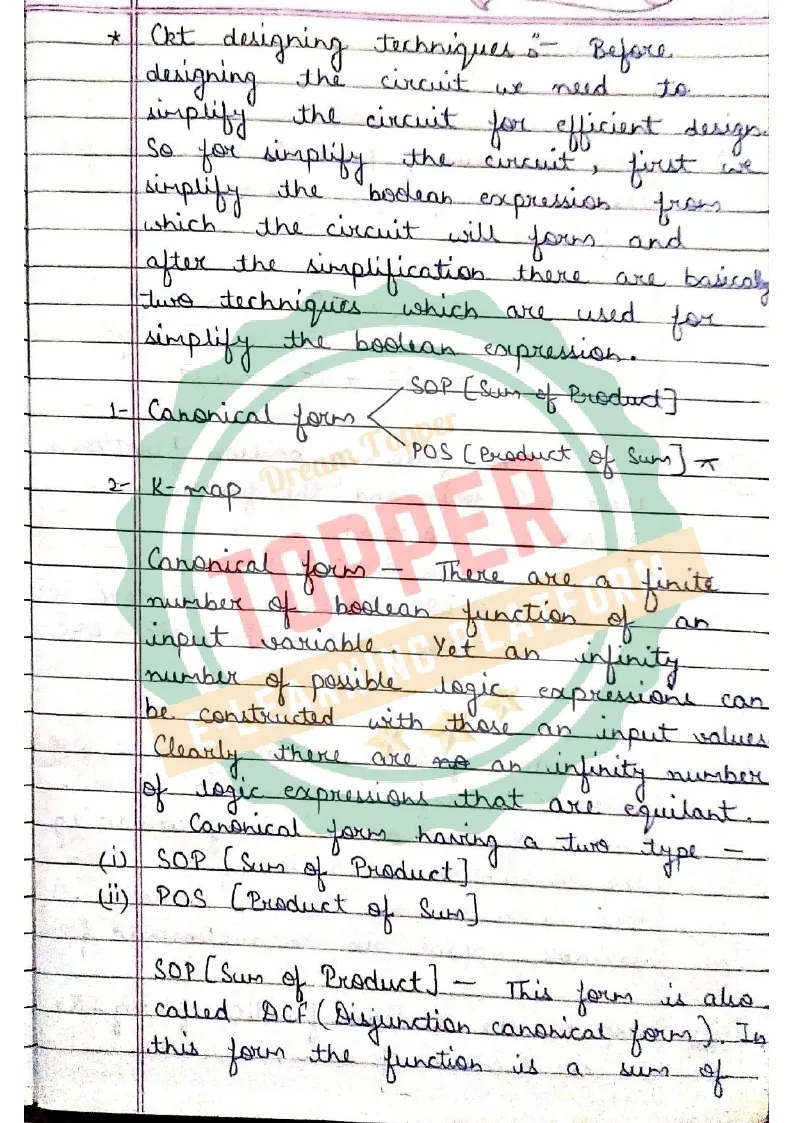 * Ckt designing techniques :- Before
designing the circuit we need to
simplify the circuit for efficient design.
So for simplify the circuit, first we
simplify the boolean expression from
which the circuit will form and
after the simplification there are basically
two techniques which are used for
simplify the boolean expression.
SOP [Sum of Product]
1- Canonical form
POS [Product of Sum] π
2- K-map
Canonical form - There are a finite
number of boolean function of an
input variable. Yet an infinity
number of possible logic expressions can
be constructed with those an input values
Clearly there are no an infinity number
of logic expressions that are equilant.
Canonical form having a two type -
(i) SOP [Sum of Product]
(ii) POS [Product of Sum]
SOP [Sum of Product] - This form is also
called DCF (Disjunction canonical form). In
this form the function is a sum of
Dream Topper
TOPPER
E-LEARNING PLATFORM